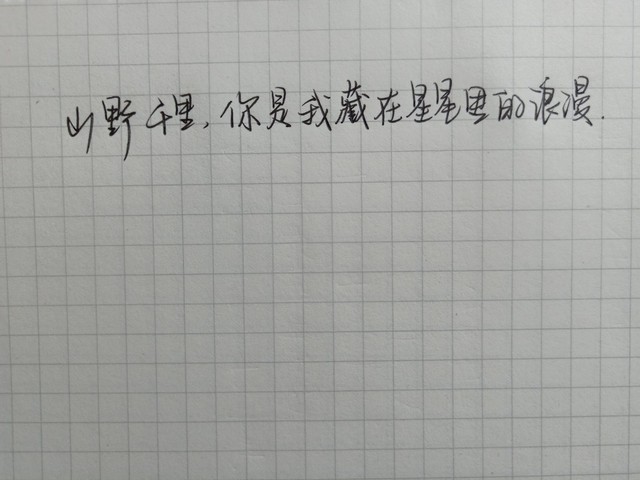 山野千里,你是我藏在星星里的浪漫.